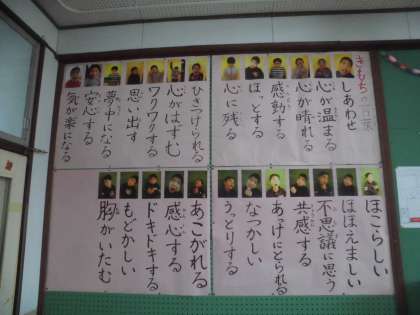 きもちの言葉
しあわせ
心が温まる
心が晴れる
感動する
ほっとする
心に残る
ひきつけられる
心がはずむ
ワクワクする
思い出す
夢中になる
安心する
気が楽になる
ほこらしい
ほほえましい
不思議に思う
共感する
あっけにとられる
なつかしい
うっとりする
あこがれる
感心する
ドキドキする
もどかしい
胸がいたむ